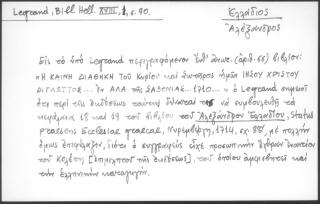 Legrand, Bibl. Hell. XVIII, 1, σ. 90.
Ἑλλάδιος
Ἀλέξανδρος
Εἰς τὸ ὑπὸ Legrand περιγραφόμενον ὑπ' ἀριθ. (ἀριθ. 66) βιβλίον:
"Η ΚΑΙΝΗ ΔΙΑΘΗΚΗ τοῦ Κυρίου καὶ Σωτῆρος ἡμῶν ΙΗΣΟΥ ΧΡΙΣΤΟΥ
ΔΙΓΛΩΤΤΟΣ... ἐν ΑΛΑ τῆς ΣΑΞΟΝΙΑΣ...1710... ὁ Legrand σημειοῖ
ὅτι περὶ τῆς ἐκδόσεως ταύτης δύναταί τις νὰ συμβουλευθῇ τὰ
κεφάλαια 18 καὶ 19 τοῦ βιβλίου τοῦ Ἀλεξάνδρου Ἑλλαδίου, Status
praesens Ecclesiae graecae, Νυρεμβέργη, 1714, μὲ πολλὴν
ὅμως ἐπιφύλαξιν, διότι ὁ συγγραφεὺς εἶχε προσωπικὴν ἔχθραν ἐναντίον
τοῦ [ἐπιμελητοῦ τῆς ἐκδόσεως], τοῦ ὁποίου ἀμφισβητεῖ καὶ
τὴν ἑλληνικὴν καταγωγήν.